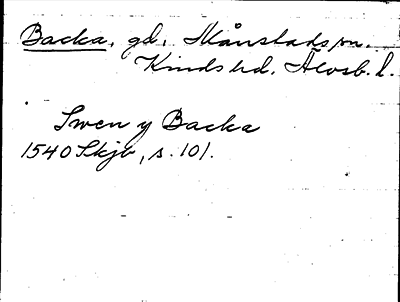 Backa, gd, Månstads sn.
Kinds hd. Älvsb. l.
Swen y Backa
1540 Skjb, s. 101.